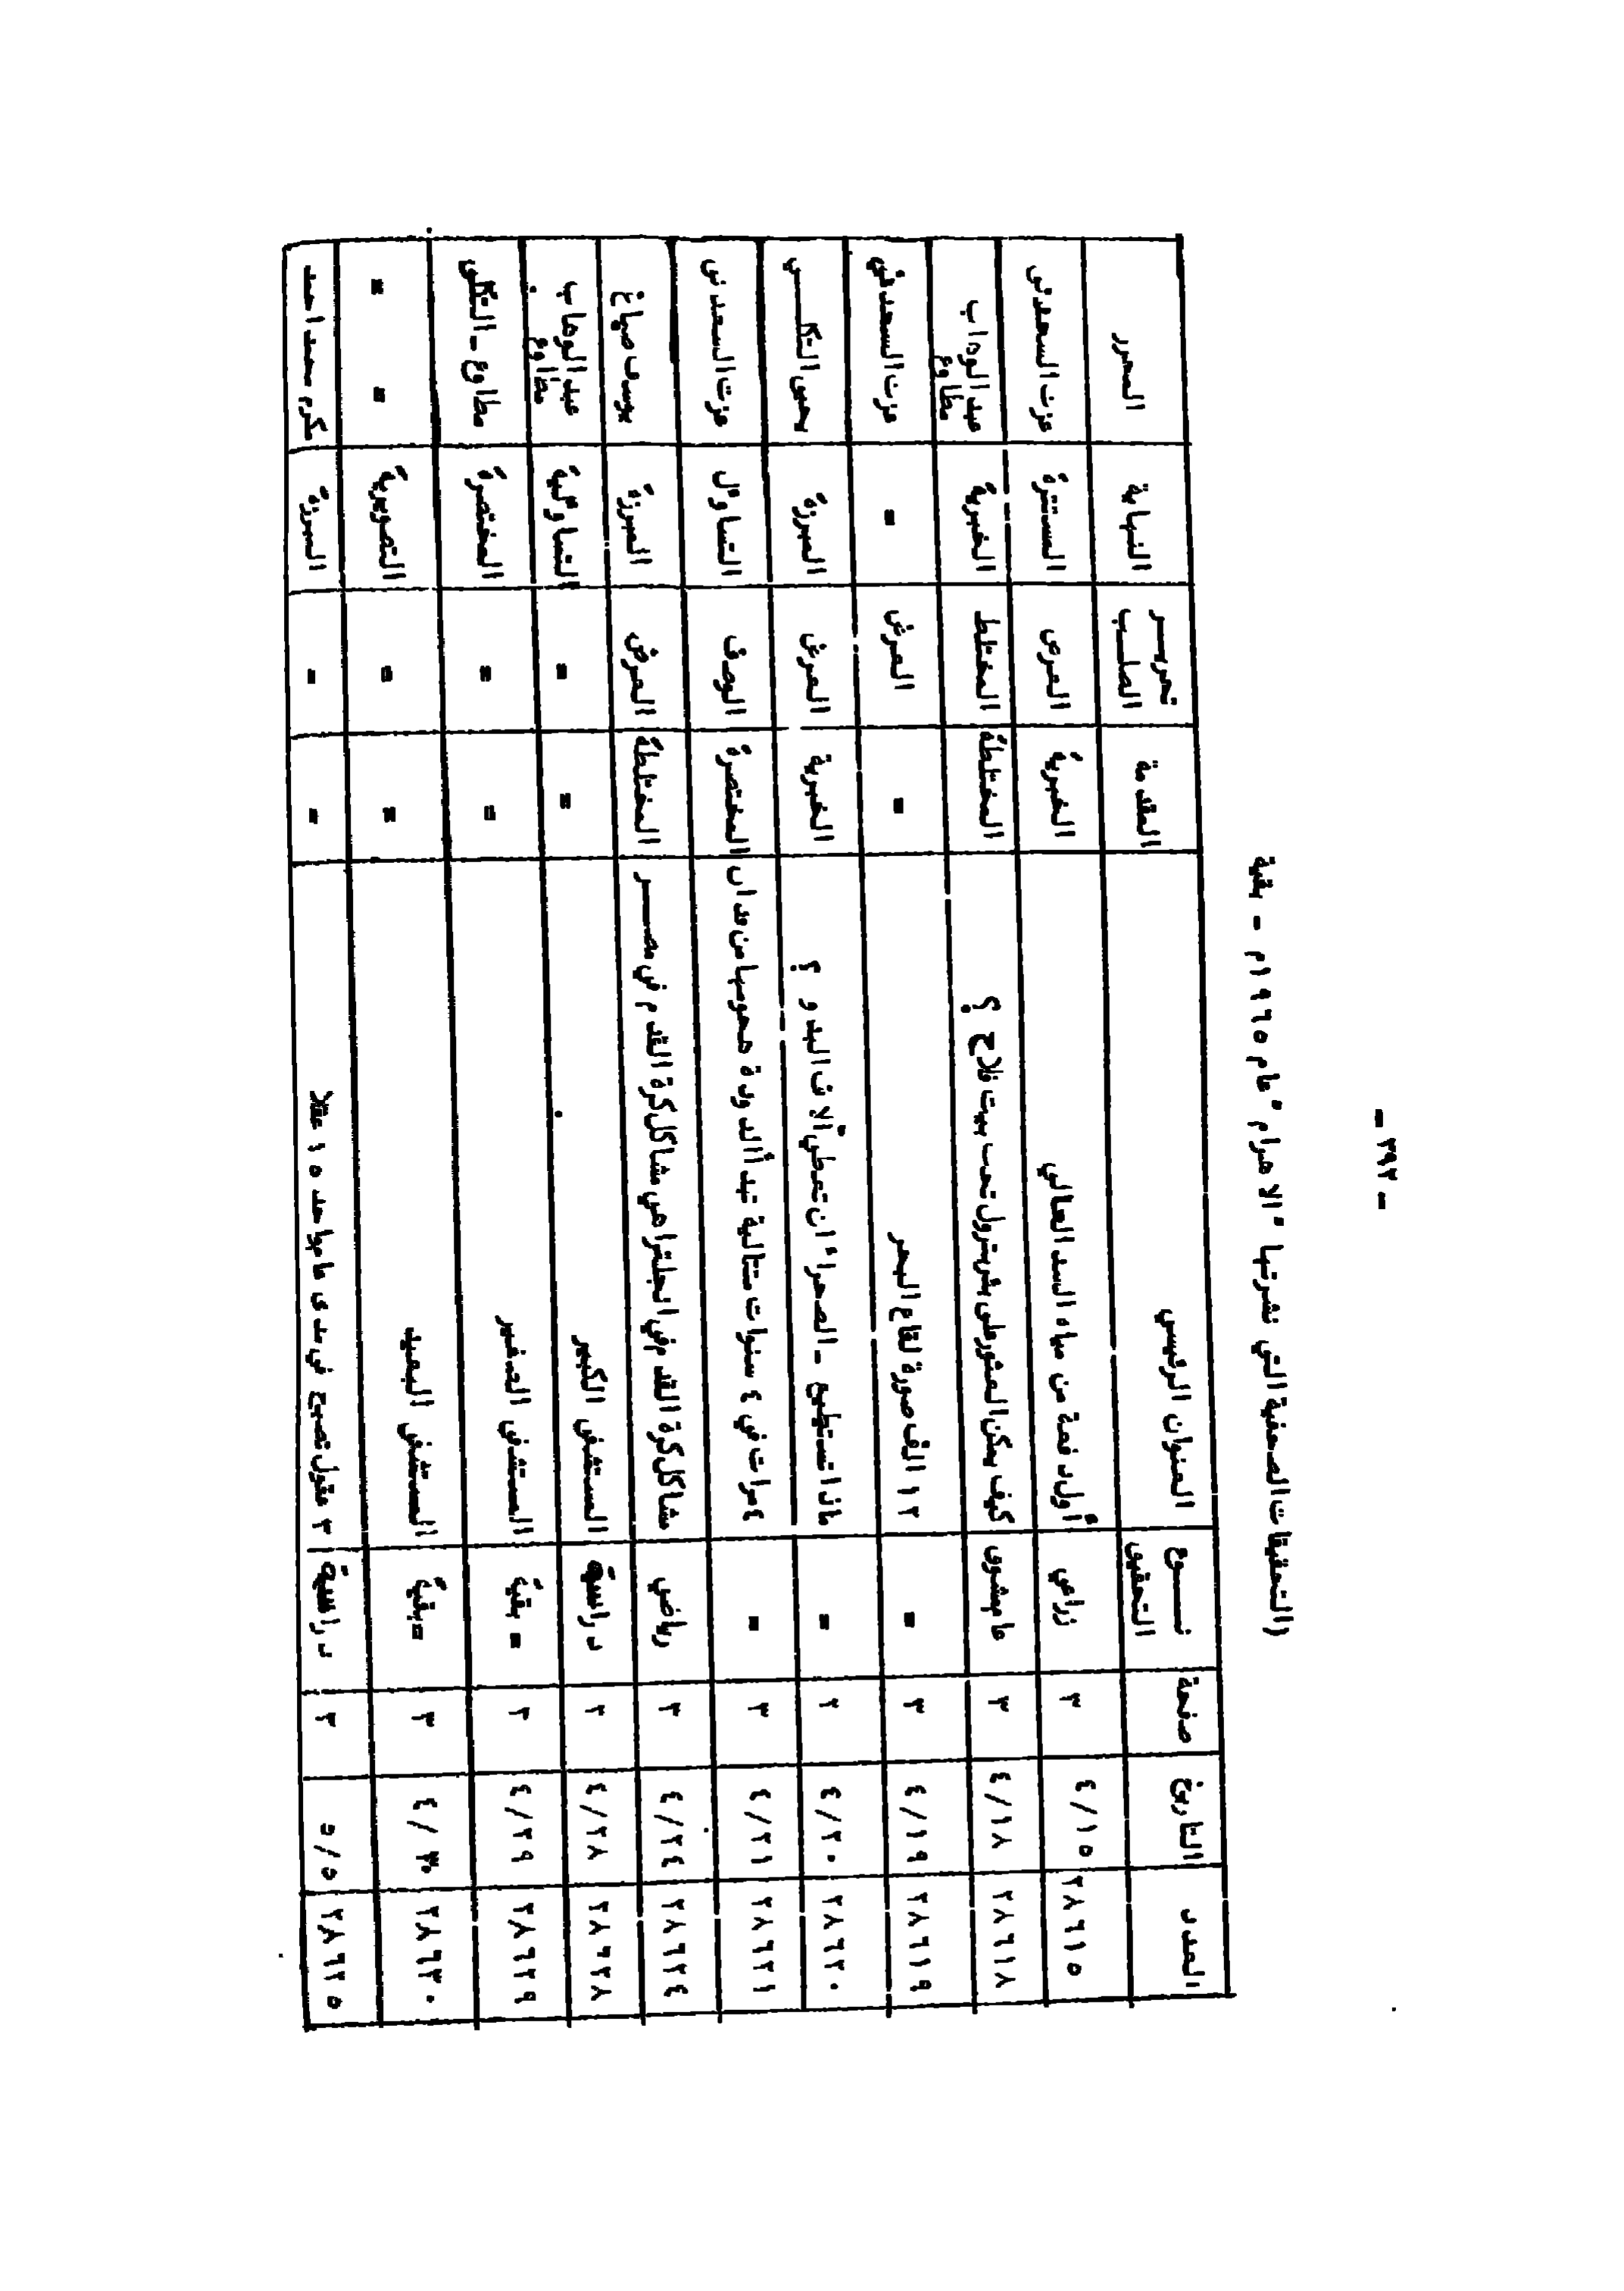 - ٣٩٢ -
(التحقيقات الصحفية التي نشرتها " الاهرام " عام ١٩٦٥م - بقية
العدد | التاريخ | صفحة | نـــوع التحقيق | العنوان الرئيسي | المقدمة | تحريــر الصلــب | النهاية | المحرر
٢٨٦١٥ | ٤/١٥ | ٣ | زراعي | أول دفعة من مياه السد العالي | الخبرية | العرض | المستترة | عزت السعدنى
٢٨٦١٨ | ٤/١٨ | ٣ | عام مشوق | كيف يمكن العثور على بئر بترول تحت بيت فلاح ؟ | المختلطة | المختلط | الخبرية | عبد الوهاب مطاوع
٢٨٦١٩ | ٤/١٩ | ٣ | = | ١٢ الف صورة لقاع البحر | = | العرض | = | عزت السعدني
٢٨٦٢٠ | ٤/٢٠ | ٣ | = | ماذا تستطيع - الصحراء ان تعطي آلاف البدو ؟ | الخبرية | العرض | المبرزة | يحيى التكلـــي
٢٨٦٢١ | ٤/٢١ | ٣ | = | ٤ مرات في ٤ سنوات متتالية تبدأ الدودة هجومها من فدان | المختصرة | الوصف | التساؤل | عزت السعدنى
٢٨٦٢٤ | ٤/٢٤ | ٣ | رياضي | مشاكل كرة القدم في انجلترا هي مشاكل كرة القدم في مصـــر | المختلطة | العرض | المبرزة | يوسف صباغ
٢٨٦٢٨ | ٤/٢٨ | ٣ | دراسية | المستشفى الكبير | = | = | التساؤلية | عبد الوهاب مطاوع
٢٨٦٢٩ | ٤/٢٩ | ٣ | = بقية | المستشفى الصغير | = | = | المختصرة | مطاوع - التكلى
٢٨٦٣٠ | ٤/٣٠ | ٣ | = بقية | المستشفى البعيد | = | = | التصويرية | = =
٢٨٦٣٥ | ٥/٥ | ٣ | دراسية | ٣ عقول تصبح في مدى عام واحد ١٥ عقلا | = | = | المبرزة | مكرم محمد احمد